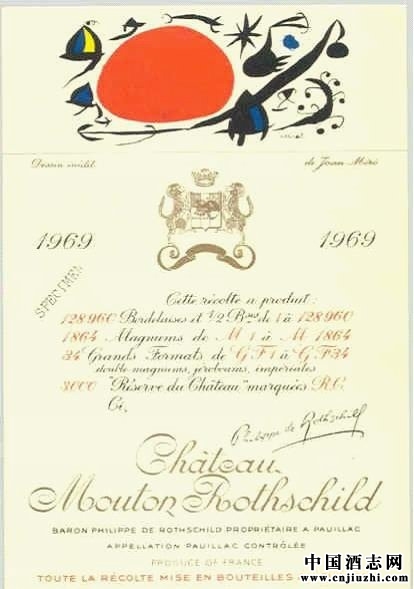 Miró
Dessin inédit de Joan Miró
1969 1969
SPECIMEN
Cette récolte a produit:
128960 Bordelaises et 1/2 Bses de 1 à 128960
1864 Magnums de M 1 à M 1864
34 Grands Formats de GF1 à GF34
double magnums, jeroboams, impériales
3000 "Réserve du Château" marquées R.C.
Ci,
Philippe de Rothschild
Château
Mouton Rothschild
BARON PHILIPPE DE ROTHSCHILD PROPRIÉTAIRE A PAUILLAC
APPELLATION PAUILLAC CONTRÔLÉE
PRODUCE OF FRANCE
TOUTE LA RÉCOLTE MISE EN BOUTEILLES
中国酒志网
www.cnjiuzhi.com